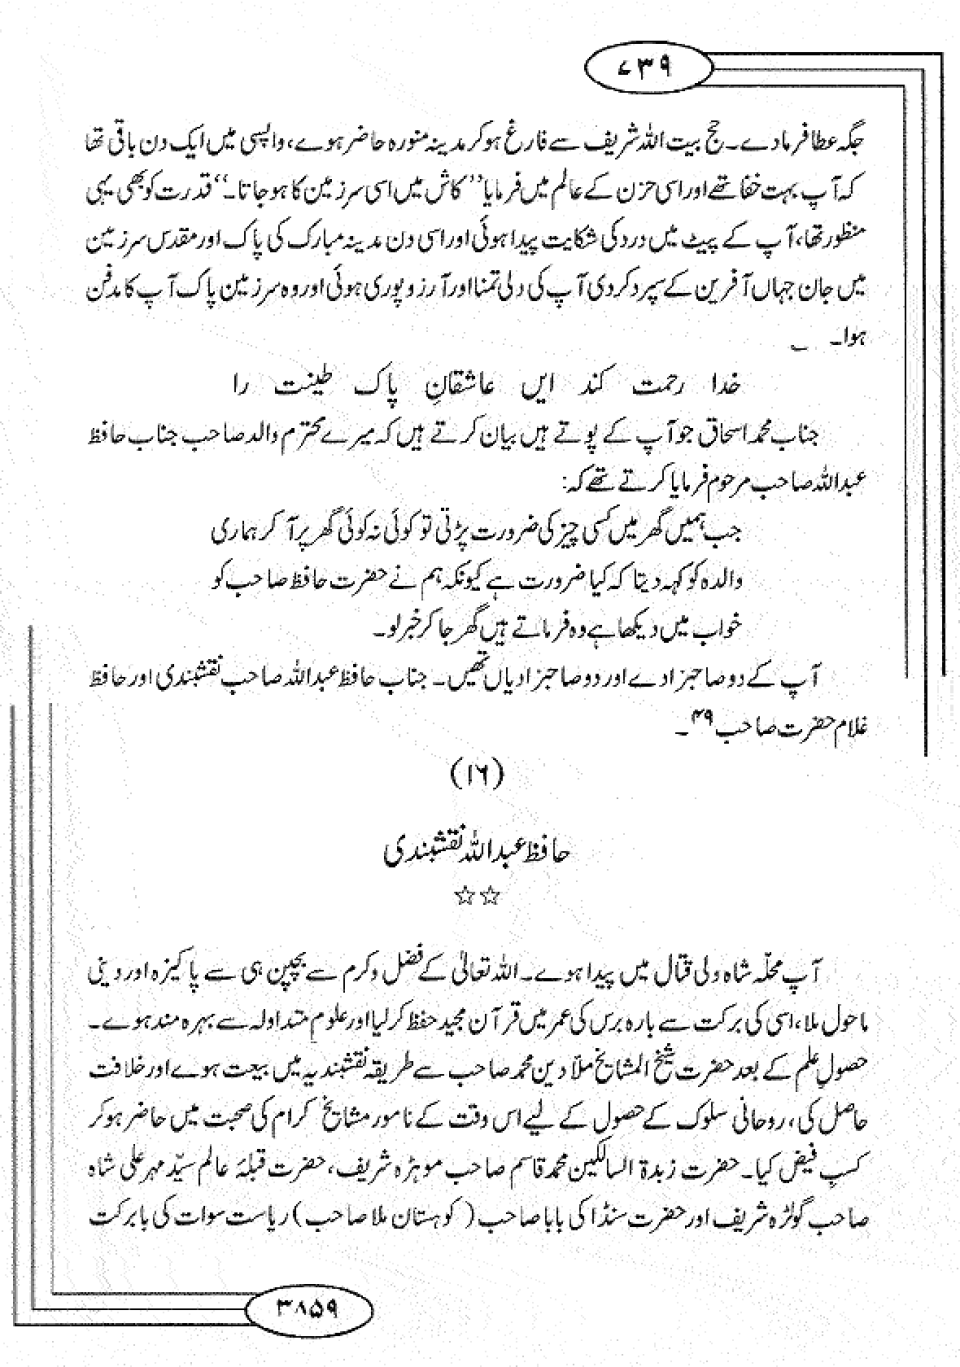 ۷۳۹
جگہ عطا فرمادے۔ حج بیت اللہ شریف سے فارغ ہوکر مدینہ منورہ حاضر ہوے، واپسی میں ایک دن باقی تھا
کہ آپ بہت خفا تھے اور اسی حزن کے عالم میں فرمایا ’’کاش میں اسی سرزمین کا ہوجاتا۔‘‘ قدرت کو بھی یہی
منظور تھا، آپ کے پیٹ میں درد کی شکایت پیدا ہوئی اور اسی دن مدینہ مبارک کی پاک اور مقدس سرزمین
میں جان جہاں آفرین کے سپرد کردی آپ کی دلی تمنا اور آرزو پوری ہوئی اور وہ سرزمین پاک آپ کا مدفن
ہوا۔
خدا رحمت کند ایں عاشقانِ پاک طینت را
جناب محمد اسحاق جو آپ کے پوتے ہیں بیان کرتے ہیں کہ میرے محترم والد صاحب جناب حافظ
عبداللہ صاحب مرحوم فرمایا کرتے تھے کہ:
جب ہمیں گھر میں کسی چیز کی ضرورت پڑتی تو کوئی نہ کوئی گھر پر آکر ہماری
والدہ کو کہہ دیتا کہ کیا ضرورت ہے کیونکہ ہم نے حضرت حافظ صاحب کو
خواب میں دیکھا ہے وہ فرماتے ہیں گھر جا کر خبر لو۔
آپ کے دو صاحبزادے اور دو صاحبزادیاں تھیں۔ جناب حافظ عبداللہ صاحب نقشبندی اور حافظ
غلام حضرت صاحب ۴۹۔
(۱۶)
حافظ عبداللہ نقشبندی
☆☆
آپ محلّہ شاہ ولی قتال میں پیدا ہوے۔ اللہ تعالیٰ کے فضل وکرم سے بچپن ہی سے پاکیزہ اور دینی
ماحول ملا، اسی کی برکت سے بارہ برس کی عمر میں قرآن مجید حفظ کرلیا اور علومِ متداولہ سے بہرہ مند ہوے۔
حصولِ علم کے بعد حضرت شیخ المشایخ ملّا دین محمد صاحب سے طریقہ نقشبندیہ میں بیعت ہوے اور خلافت
حاصل کی، روحانی سلوک کے حصول کے لیے اس وقت کے نامور مشایخ کرام کی صحبت میں حاضر ہوکر
کسب فیض کیا۔ حضرت زبدۃ السالکین محمد قاسم صاحب موہڑہ شریف، حضرت قبلۂ عالم سیّد مہر علی شاہ
صاحب گولڑہ شریف اور حضرت سنڈاکی بابا صاحب (کوہستان ملا صاحب) ریاست سوات کی بابرکت
۳۸۵۹